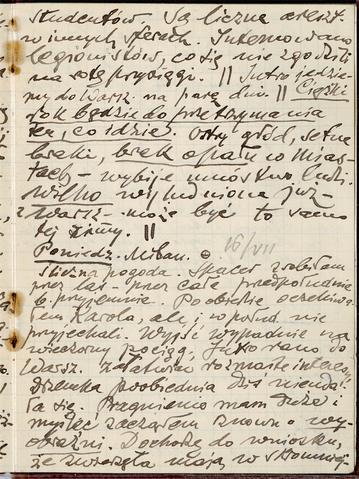 studentów, są liczne areszt.
w innych sferach. Internowano
legionistów, co się nie zgodzili
na rotę przysięgi. || Jutro jedzie-
my do Warsz. na parę dni. || Ciężki
rok będzie do przetrzymania
ten, co idzie. Ostry głód, setne
braki, brak opału w mias-
tach - wybije mnóstwo ludzi.
Wilno wyludnione już
- Warsz. - może być to samo
tej zimy. ||
Poniedz. Milan. 16/VII
Śliczna pogoda. Spacer zrobiłem
przez las - przez całe przedpołudnie
b. przyjemnie. Po obiedzie oczekiwa-
łem Karola, ale i w połud. nie
przyjechali. Wyjść wypadnie na
wieczorny pociąg. Jutro rano do
Warsz. załatwiać rozmaite interesy
drzemka poobiednia dziś nie uda-
ła się. Pragnienie mam duże i
myśleć zacząłem znowu o wy-
obraźni. Dochodzę do wniosku,
że zwierzęta mają w